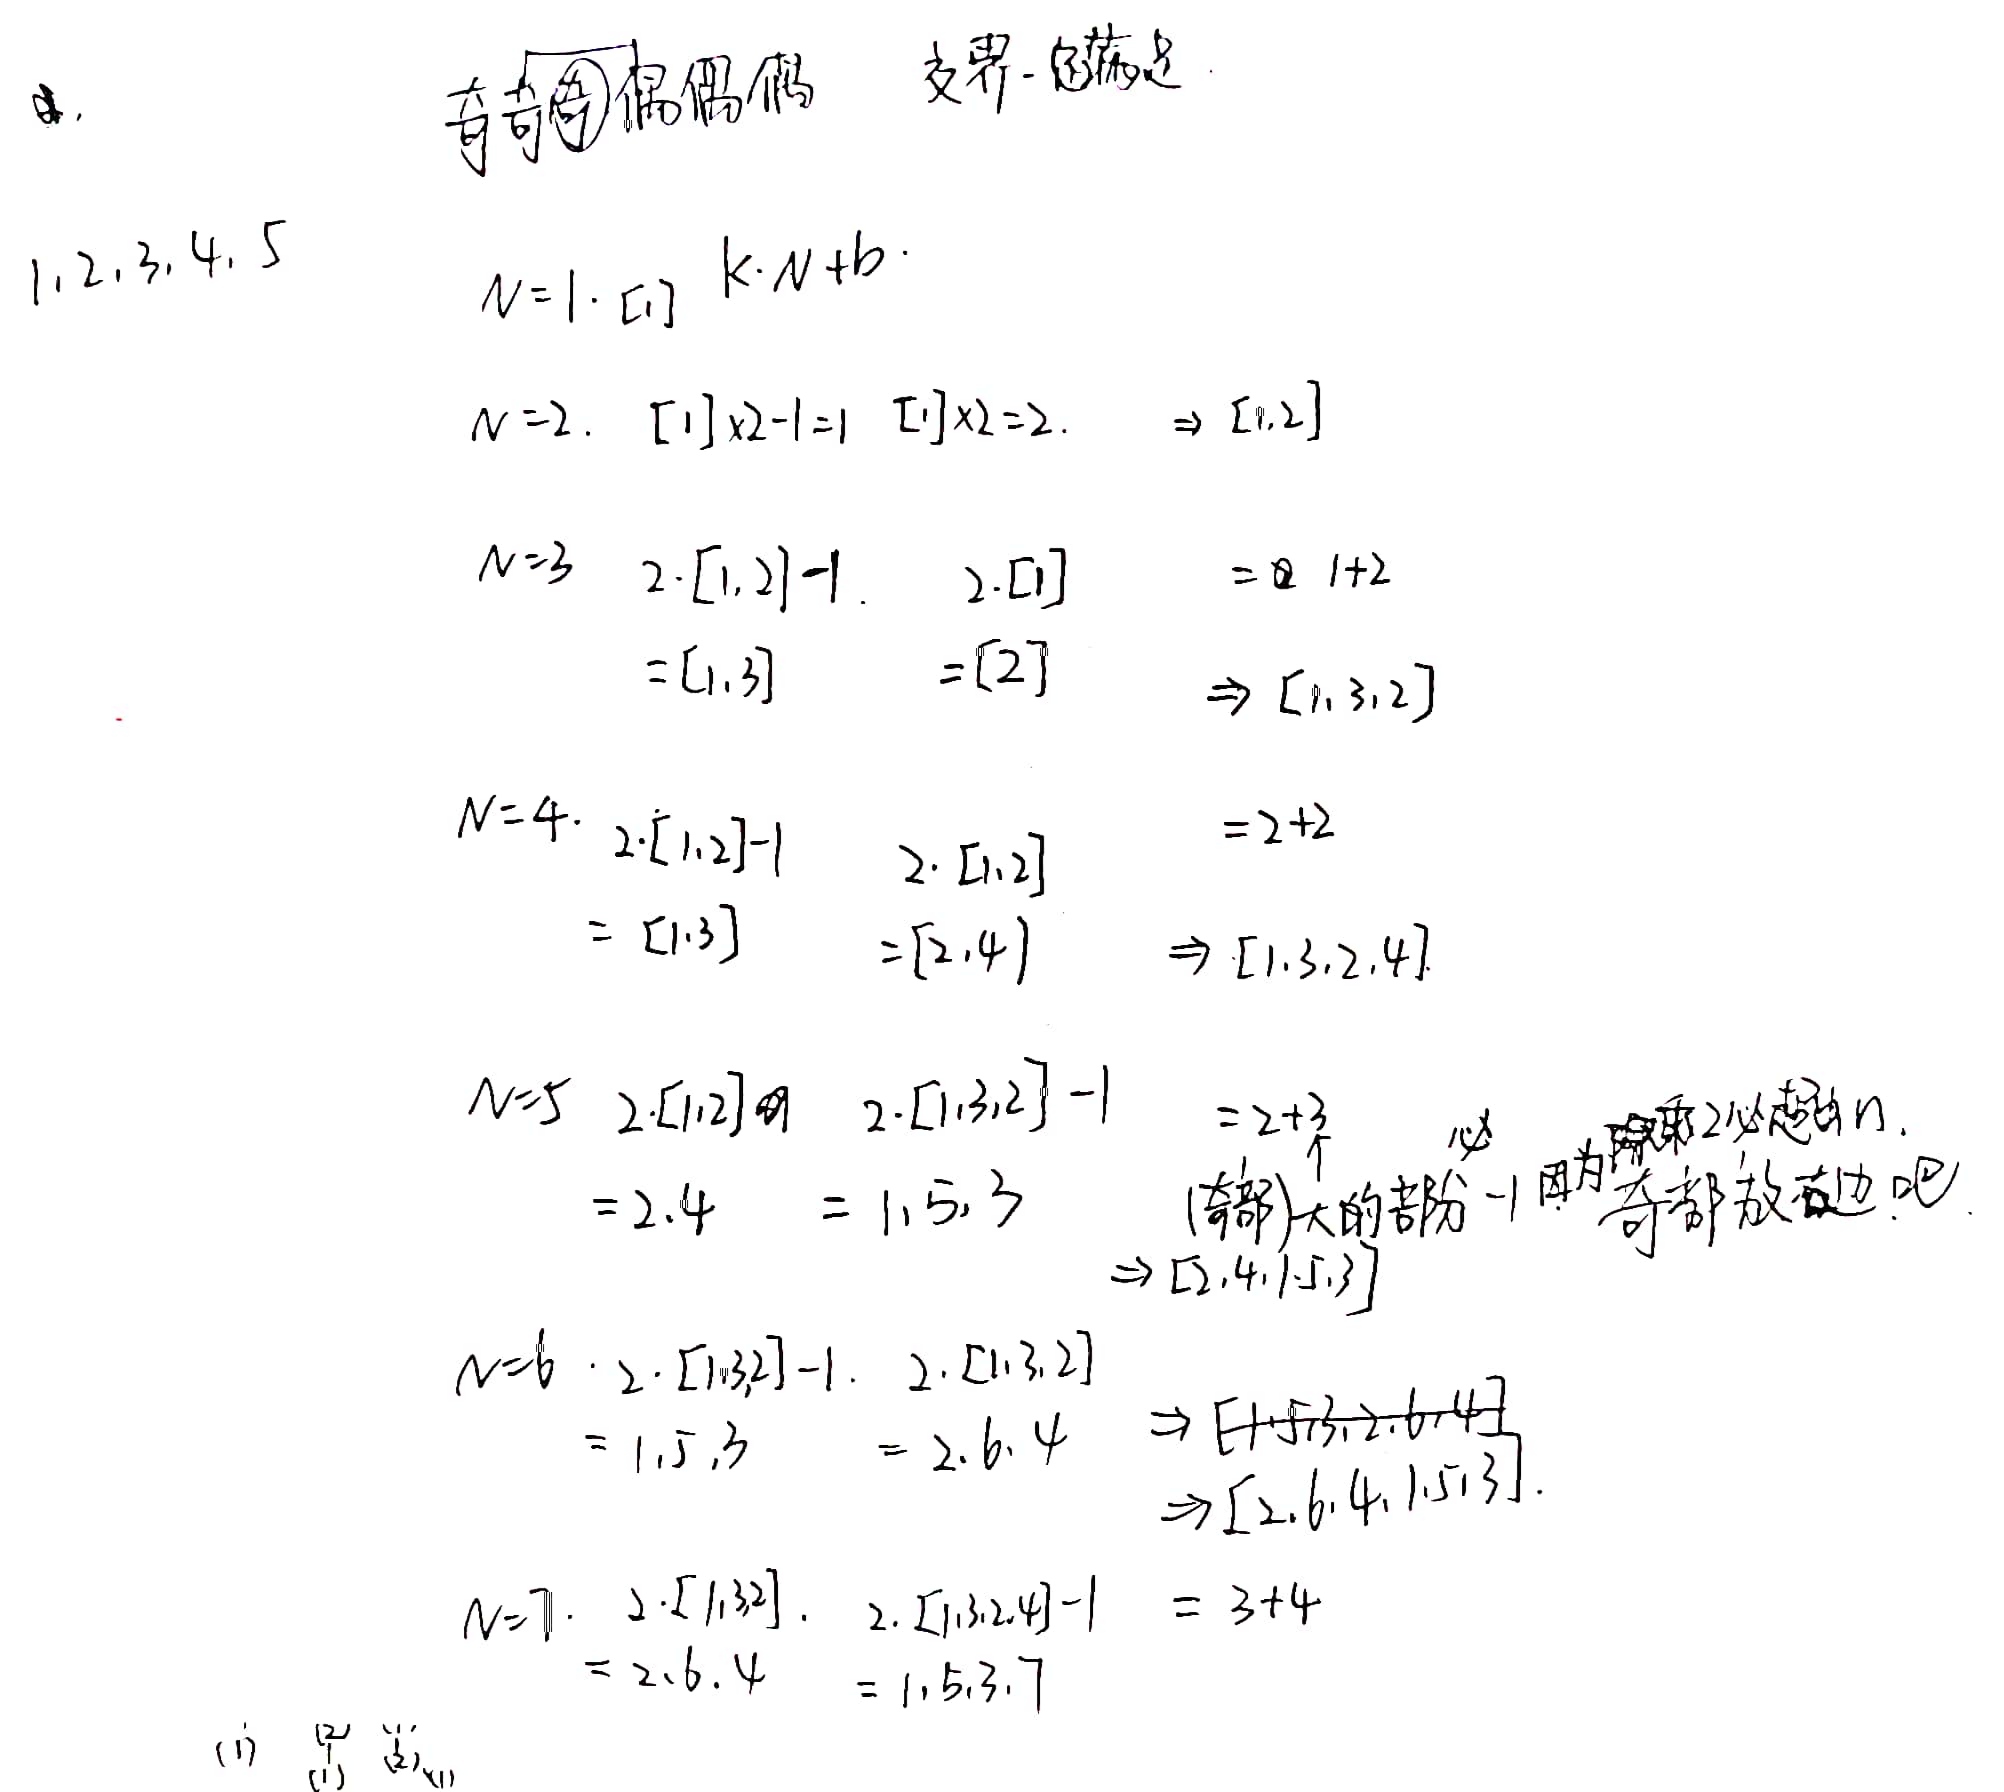 奇奇奇偶偶偶 交界一定满足.
1,2,3,4,5
N=1. [1] k·N+b.
N=2. [1]×2-1=1 [1]×2=2. ⇒ [1,2]
N=3 2·[1,2]-1. 2·[1] = 1+2
=[1,3] =[2] ⇒ [1,3,2]
N=4. 2·[1,2]-1 2·[1,2] =2+2
= [1,3] =[2,4] ⇒ [1,3,2,4].
N=5 2·[1,2] 2·[1,3,2]-1 =2+3
=2,4 = 1,5,3 ↑
(奇部)大的部份必-1 因为乘2必超出n.
奇部放右边吧.
⇒ [2,4,1,5,3]
N=6 . 2·[1,3,2]-1. 2·[1,3,2] ⇒ [1,5,3,2,6,4]
= 1,5,3 = 2,6,4 ⇒ [2,6,4,1,5,3].
N=7. 2·[1,3,2]. 2·[1,3,2,4]-1 = 3+4
= 2,6,4 = 1,5,3,7
(1) (2) (1)
(1) (2) (1)